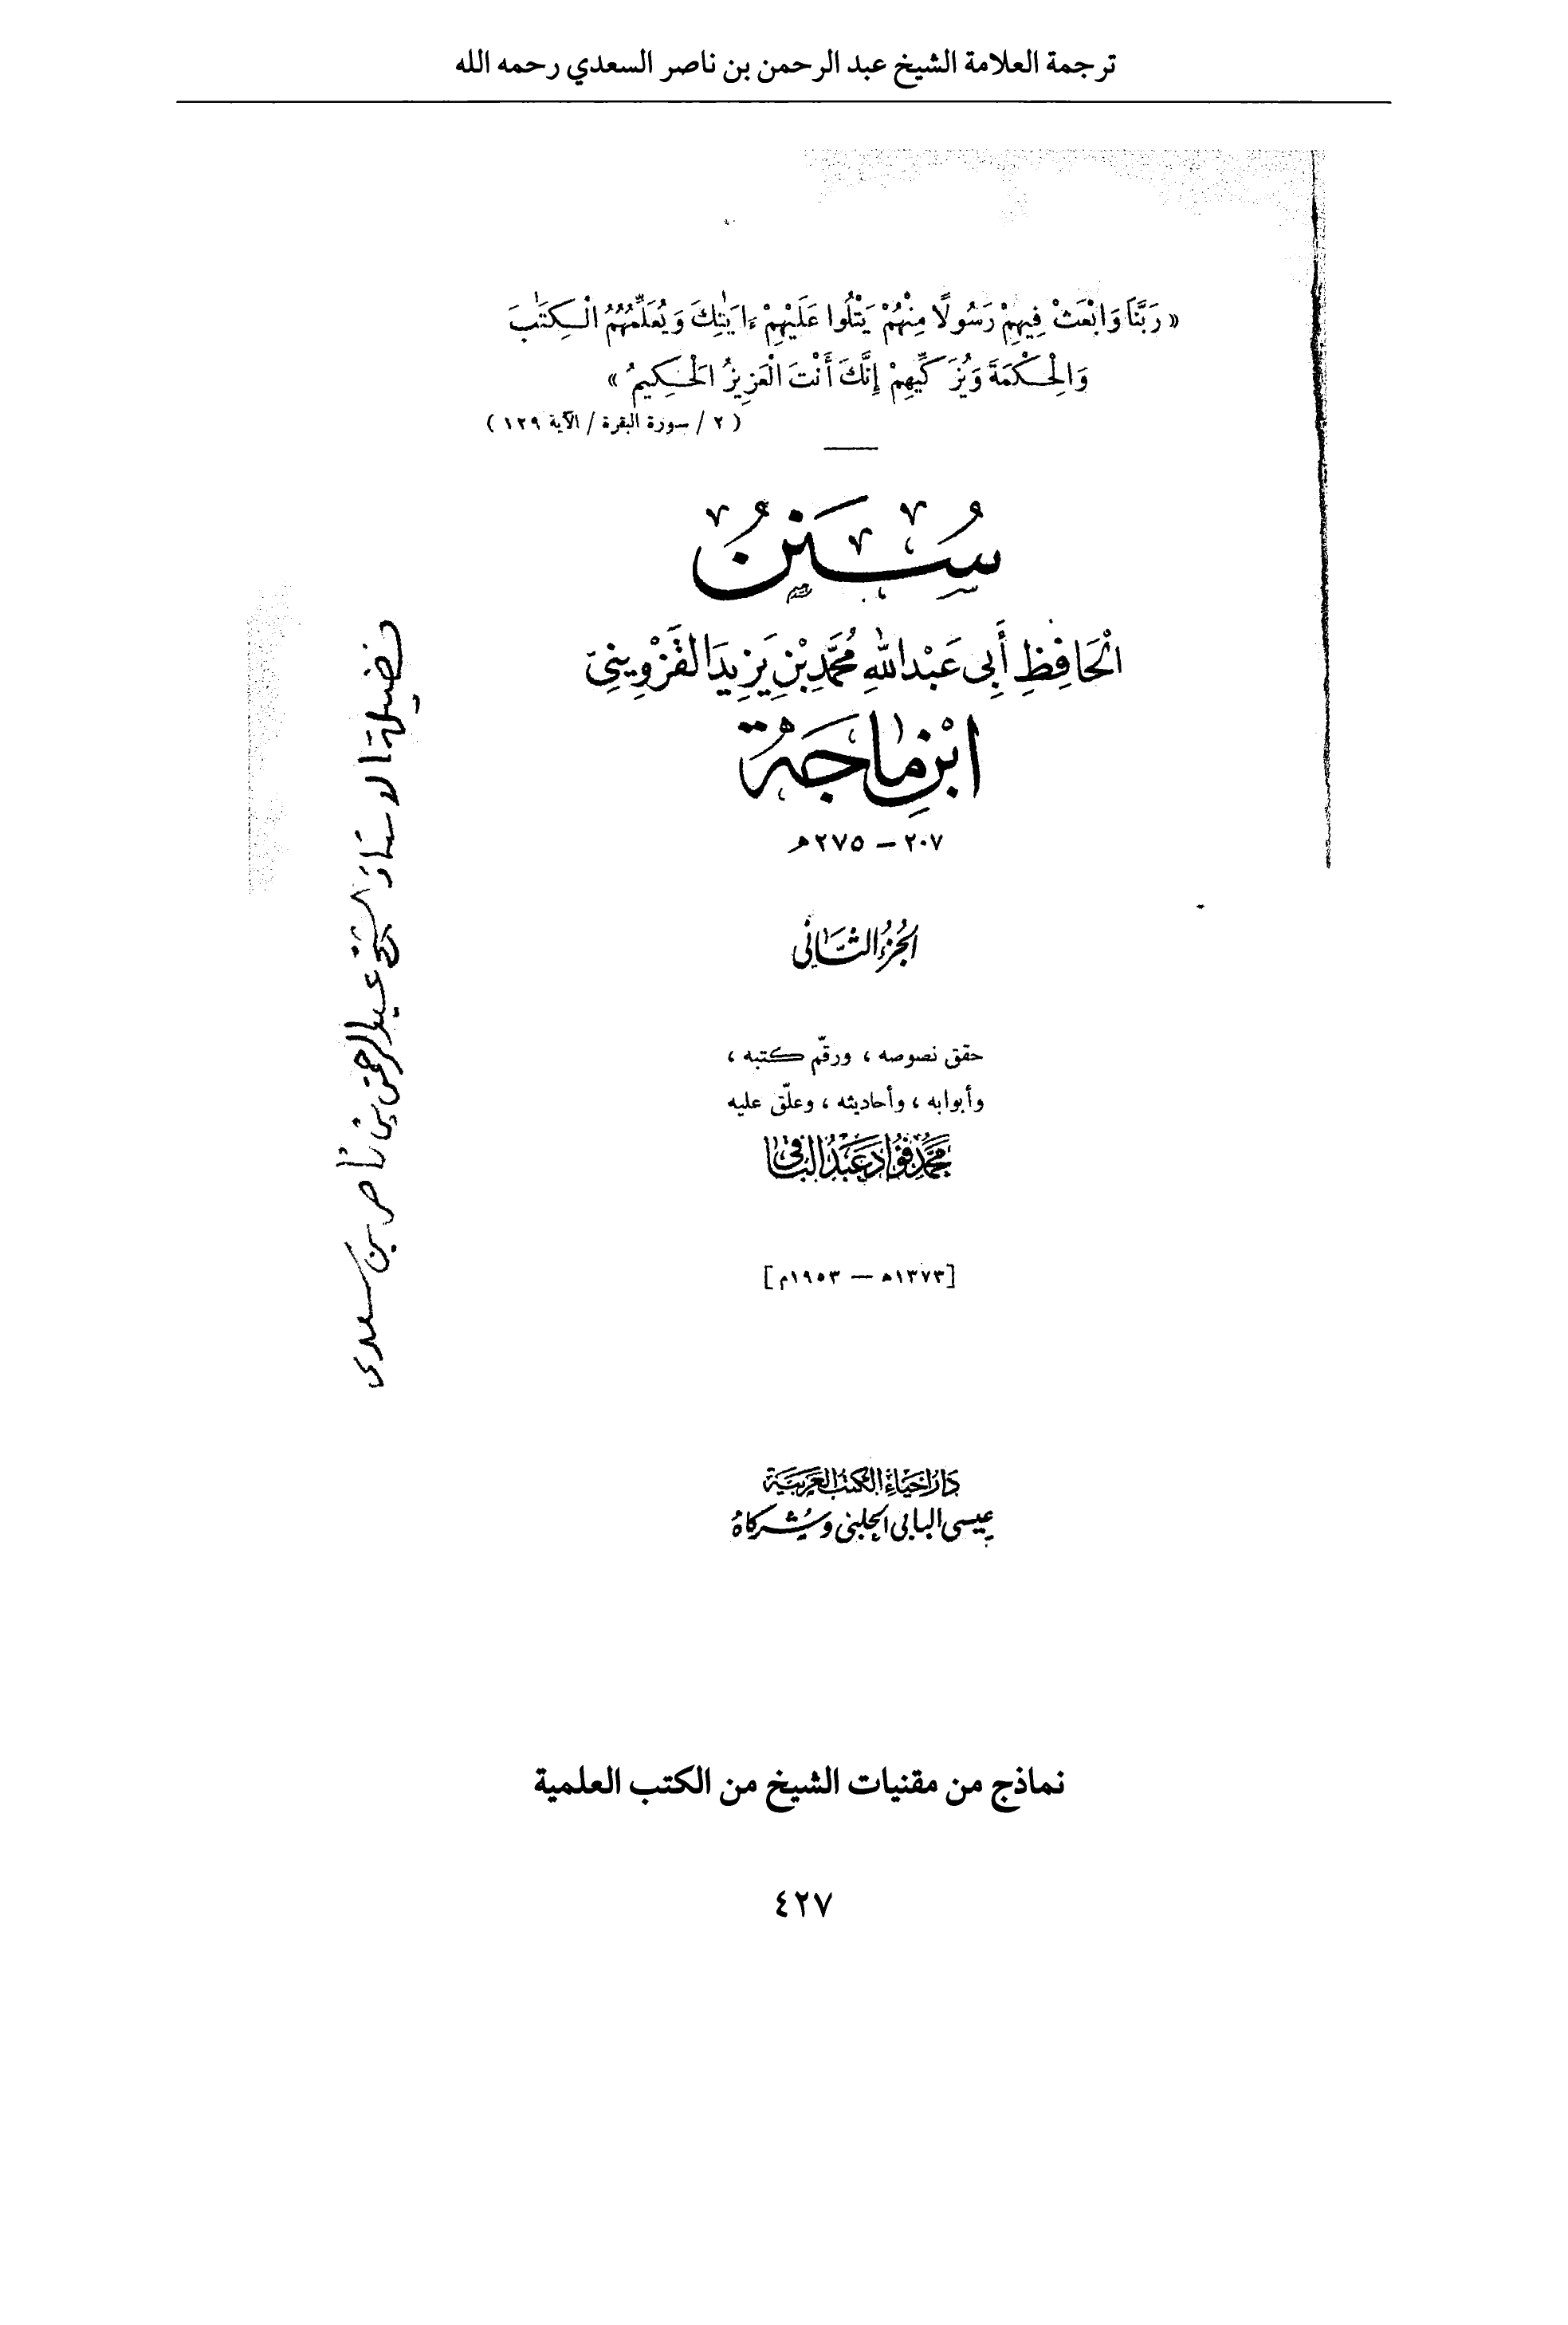 ترجمة العلامة الشيخ عبد الرحمن بن ناصر السعدي رحمه الله
« رَبَّنَا وَابْعَثْ فِيهِمْ رَسُولًا مِنْهُمْ يَتْلُوا عَلَيْهِمْ ءَايَٰتِكَ وَيُعَلِّمُهُمُ الْكِتَٰبَ
وَالْحِكْمَةَ وَيُزَكِّيهِمْ إِنَّكَ أَنْتَ الْعَزِيزُ الْحَكِيمُ »
( ٢ / سورة البقرة / الآية ١٢٩ )
سُنَنُ
الْحَافِظِ أَبِى عَبْدِ اللهِ مُحَمَّدِ بْنِ يَزِيدَ القَزْوِينِىّ
ابْنِ مَاجَهْ
٢٠٧ – ٢٧٥ هـ
الجُزءُ الثَّانِى
حقق نصوصه ، ورقّم كتبه ،
وأبوابه ، وأحاديثه ، وعلّق عليه
مُحَمَّد فُؤَاد عَبْدُ الْبَاقِى
[١٣٧٣ه — ١٩٥٣م]
دَارُ إِحْيَاءِ الكُتُبُ العَرَبِيَّة
عِيسى البابى الحلبى وشُركاهُ
فضيلة الاستاذ الشيخ عبد الرحمن بن ناصر بن سعدى
نماذج من مقنيات الشيخ من الكتب العلمية
٤٢٧